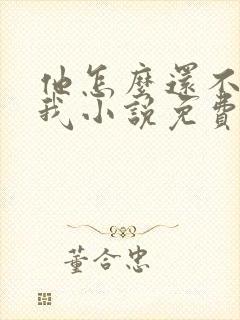 他怎麼還不
我小說免費
董合忠